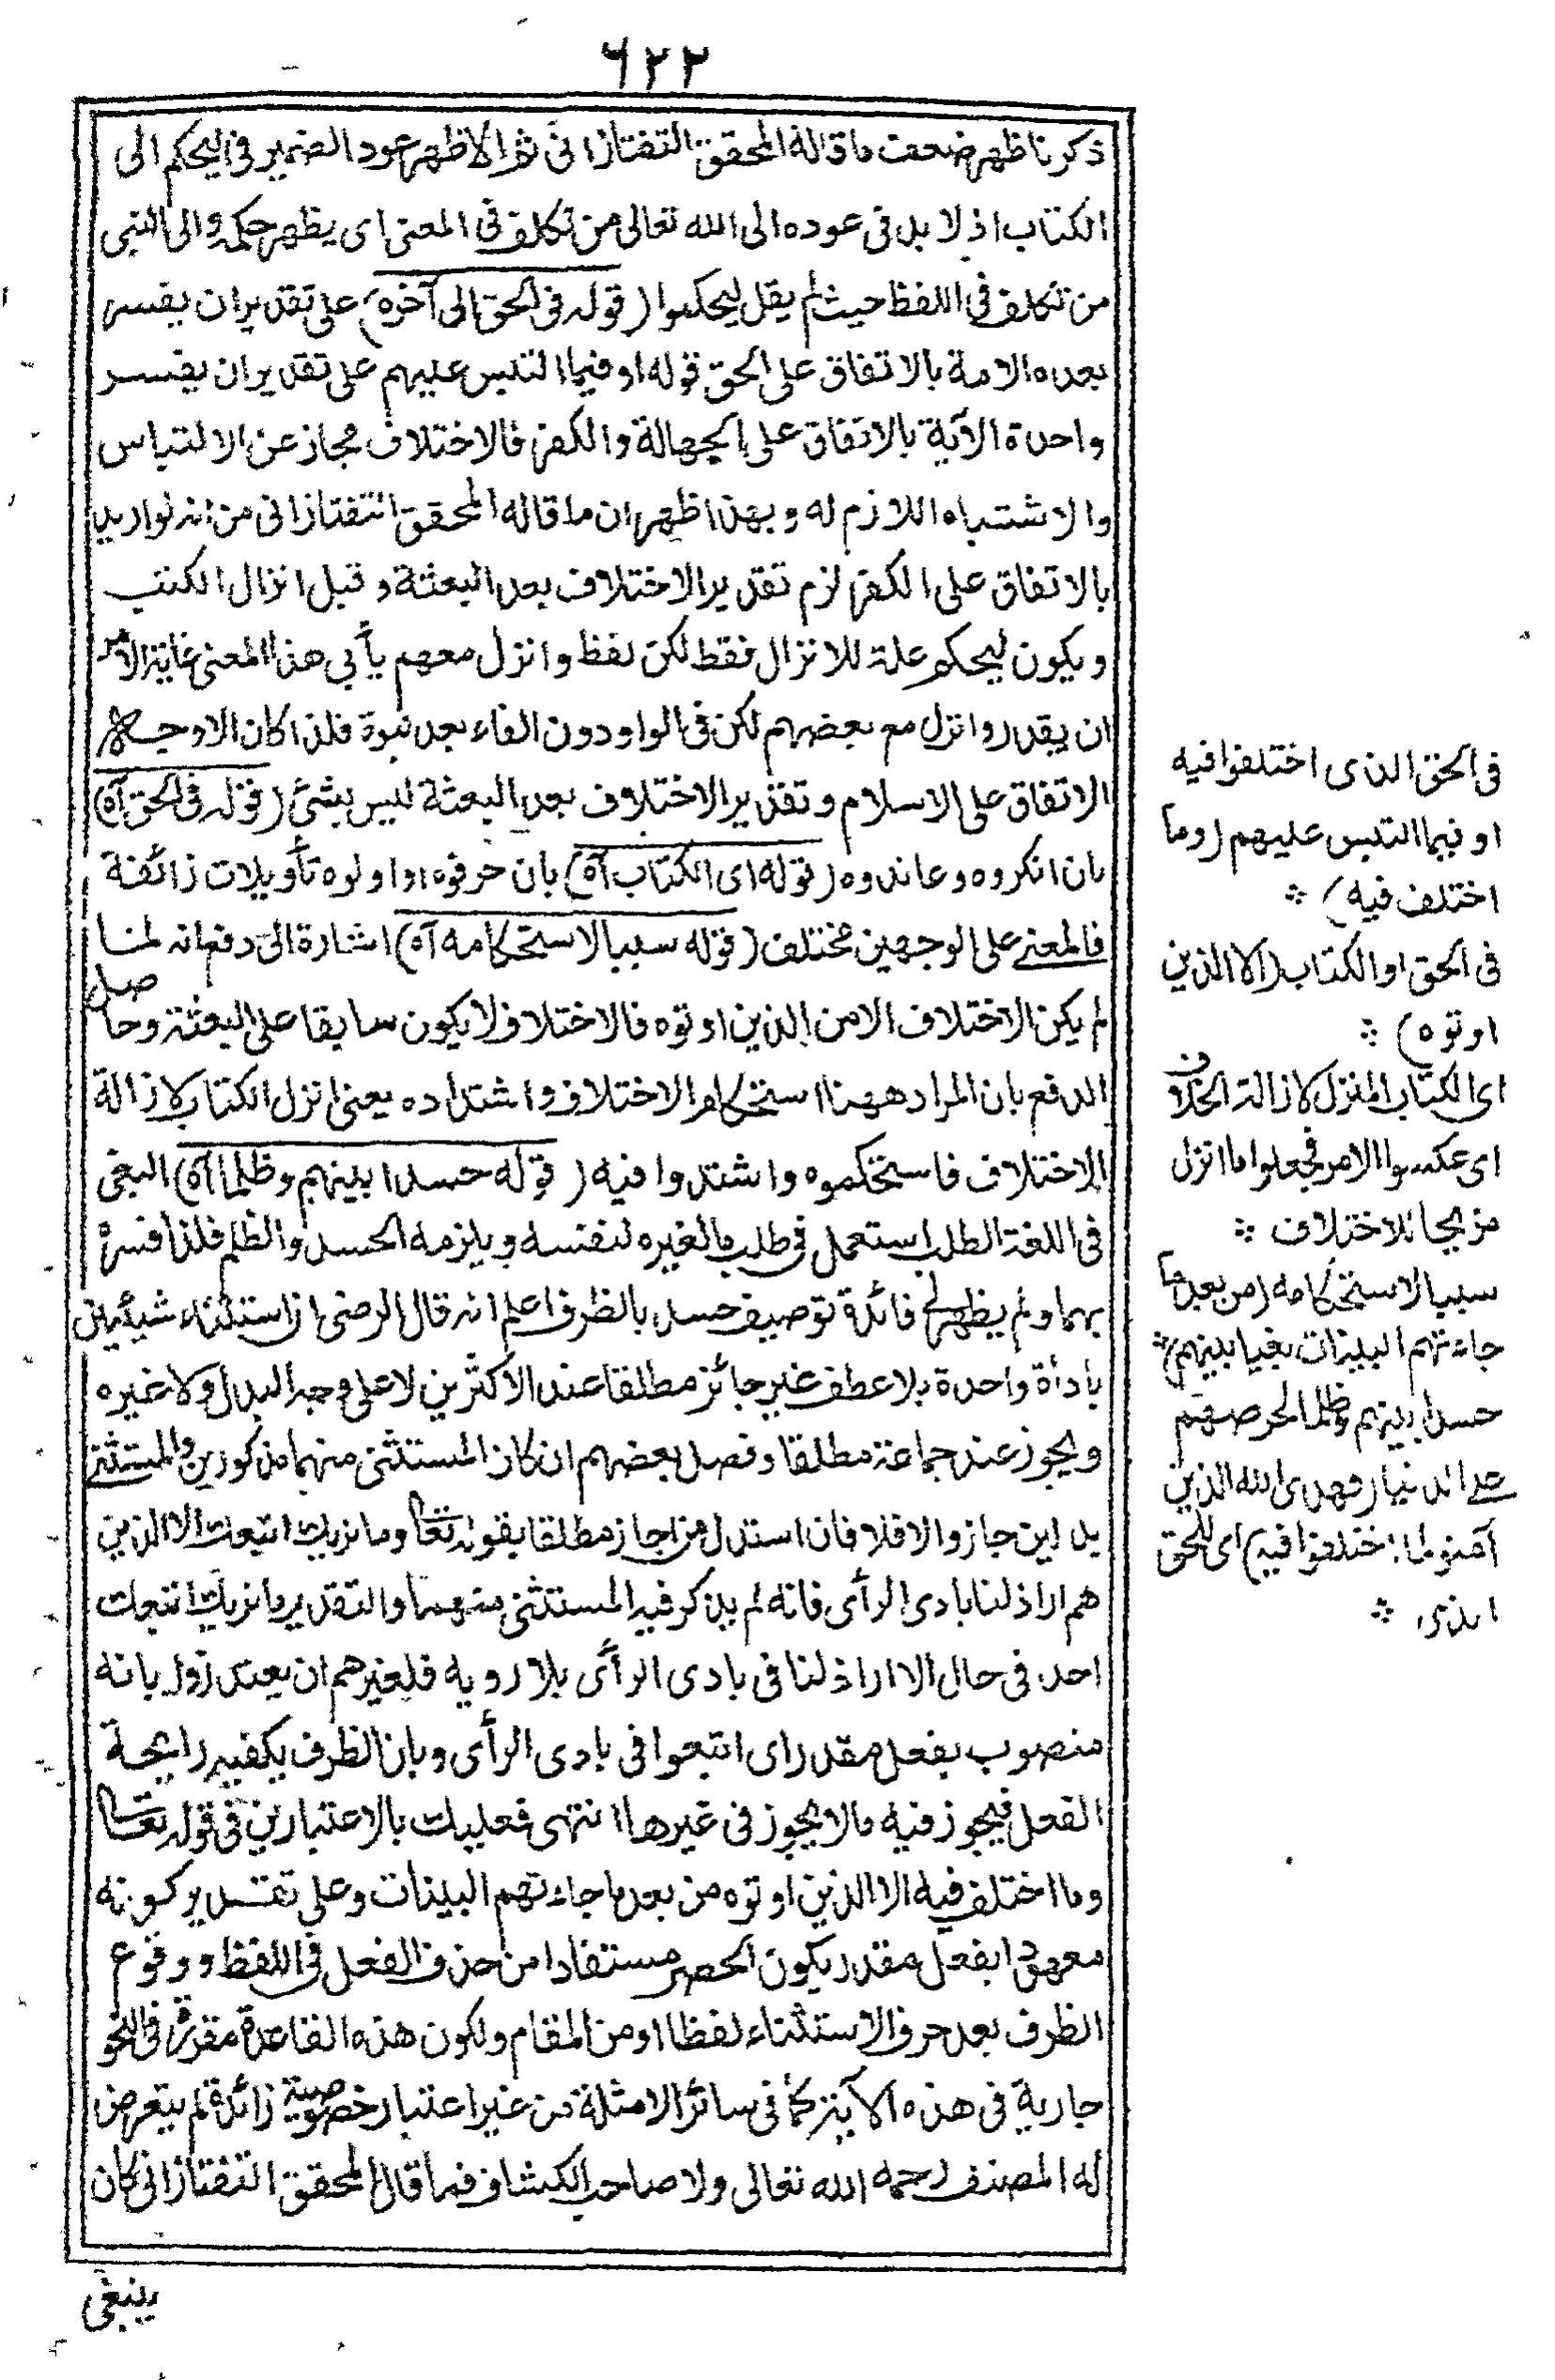 ٦٢٢
ذكرنا ظهر ضعف ما قاله المحقق التفتازانى ثم الاظهر عود الضمير فى ليحكم الى
الكتاب اذ لا بد فى عوده الى الله تعالى من تكلف فى المعنى اى يظهر حكمه والى النبى
من تكلف فى اللفظ حيث لم يقل ليحكموا (قوله فى الحق الى آخره) على تقدير ان يفسر
بعده الامة بالاتفاق على الحق قوله او فيما التبس عليهم على تقدير ان يفسر
واحدة الآية بالاتفاق على الجهالة والكفر فالاختلاف مجاز عن الالتباس
والاشتباه اللازم له وبهذا ظهر ان ما قاله المحقق التفتازانى من انه لو اريد
بالاتفاق على الكفر لزم تقدير الاختلاف بعد البعثة وقبل انزال الكتب
ويكون ليحكم علة للانزال فقط لكن لفظ وانزل معهم يأبى هذا المعنى غاية الامر
ان يقدر وانزل مع بعضهم لكن فى الواو دون الفاء بعد نبوة فلذا كان الاوجه
الاتفاق على الاسلام وتقدير الاختلاف بعد البعثة ليس بشئ (قوله فى الحق آه)
بان انكروه وعاندوه (قوله اى الكتاب آه) بان حرفوه او اولوه تأويلات زائفة
فالمعنى على الوجهين مختلف (قوله سببا لاستحكامه آه) اشارة الى دفع انه لما
لم يكن الاختلاف الا من الذين اوتوه فالاختلاف لا يكون سابقا على البعثة وحاصل
الدفع بان المراد ههنا استحكام الاختلاف واشتداده يعنى انزل الكتاب لازالة
الاختلاف فاستحكموه واشتدوا فيه (قوله حسدا بينهم وظلما آه) البغى
فى اللغة الطلب استعمل فى طلب ما لغيره لنفسه ويلزمه الحسد والظلم فلذا فسره
بهما ولم يظهر لى فائدة توصيف حسد بالظرف اعلم انه قال الرضى ان استثناء شيئين
بادأة واحدة بلا عطف غير جائز مطلقا عند الاكثرين لا على وجه البدل ولا غيره
ويجوز عند جماعة مطلقا وفصل بعضهم ان كان المستثنى منهما مذكورين والمستثنى
بدلين جاز والا فلا فان استدل من اجاز مطلقا بقوله تعالى وما نريك اتبعك الا الذين
هم اراذلنا بادى الرأى فانه لم يذكر فيه المستثنى منهما والتقدير ما نريك اتبعك
احد فى حال الا اراذلنا فى بادى الرأى بلا روية فلغيرهم ان يعتذروا بانه
منصوب بفعل مقدر اى اتبعوا فى بادى الرأى وبان الظرف يكفيه رايحة
الفعل فيجوز فيه ما لا يجوز فى غيرها انتهى فعليك بالاعتبارين فى قوله تعالى
وما اختلف فيه الا الذين اوتوه من بعد ما جاءتهم البينات وعلى تقدير كونه
معمولا بفعل مقدر يكون الحصر مستفادا من حذف الفعل فى اللفظ ووقوع
الظرف بعد حرف الاستثناء لفظا او من المقام ولكون هذه القاعدة مقررة فى النحو
جارية فى هذه الآية كما فى سائر الامثلة من غير اعتبار خصوصية زائدة لم يتعرض
له المصنف رحمه الله تعالى ولا صاحب الكشاف فما قال المحقق التفتازانى كان
ينبغى
فى الحق الذى اختلفوا فيه
او فيما التبس عليهم (وما
اختلف فيه)
فى الحق او الكتاب (الا الذين
اوتوه)
اى الكتاب المنزل لازالة الخلاف
اى عكسوا الامر فجعلوا ما انزل
مزيحا للاختلاف
سببا لاستحكامه (من بعد ما
جاءتهم البينات بغيا بينهم)
حسدا بينهم وظلما لحرصهم
على الدنيا (فهدى الله الذين
آمنوا لما اختلفوا فيه) اى للحق
الذى